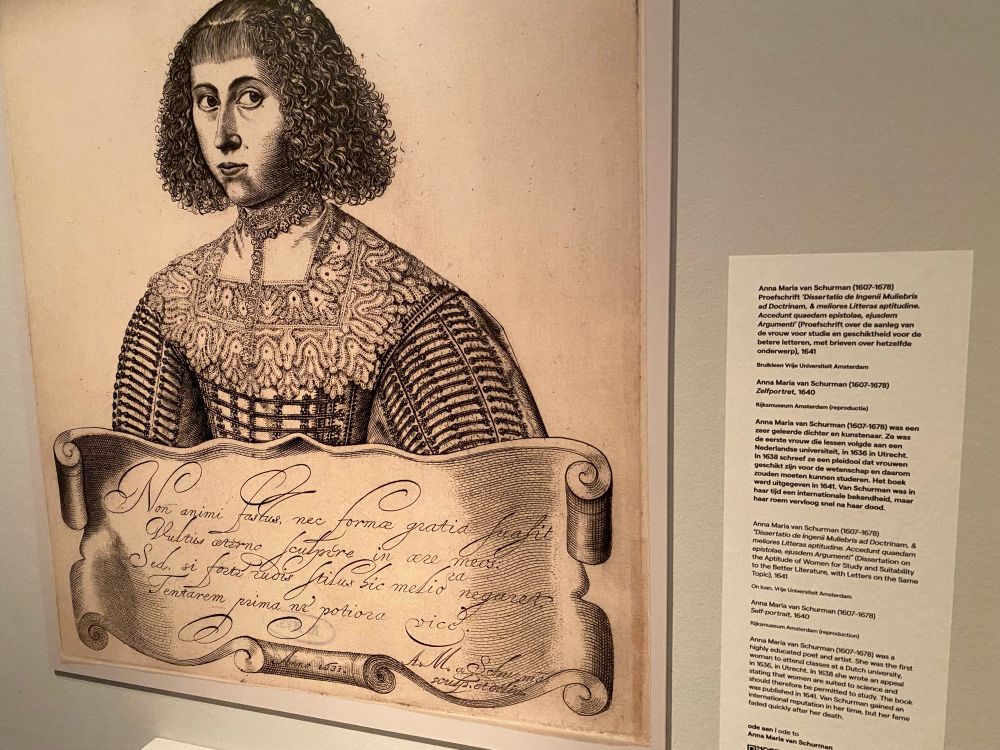 Non animi fastus, nec formæ gratia suasit
Vultus æterno sculpere in ære meos:
Sed, si forte rudis stilus hic meliora negaret,
Tentarem prima ne potiora vice.
Anno 1633.
A. M. a Schurman
Anna Maria van Schurman (1607-1678)
Proefschrift 'Dissertatio de Ingenii Muliebris
ad Doctrinam, & meliores Litteras aptitudine.
Accedunt quaedam epistolae, ejusdem
Argumenti' (Proefschrift over de aanleg van
de vrouw voor studie en geschiktheid voor de
betere letteren, met brieven over hetzelfde
onderwerp), 1641
Bruikleen Vrije Universiteit Amsterdam
Anna Maria van Schurman (1607-1678)
Zelfportret, 1640
Rijksmuseum Amsterdam (reproductie)
Anna Maria van Schurman (1607-1678) was een
zeer geleerde dichter en kunstenaar. Ze was
de eerste vrouw die lessen volgde aan een
Nederlandse universiteit, in 1636 in Utrecht.
In 1638 schreef ze een pleidooi dat vrouwen
geschikt zijn voor de wetenschap en daarom
zouden moeten kunnen studeren. Het boek
werd uitgegeven in 1641. Van Schurman was in
haar tijd een internationale bekendheid, maar
haar roem vervloog snel na haar dood.
Anna Maria van Schurman (1607-1678)
"Dissertatio de Ingenii Muliebris ad Doctrinam, &
meliores Litteras aptitudine. Accedunt quaedam
epistolae, ejusdem Argumenti" (Dissertation on
the Aptitude of Women for Study and Suitability
to the Better Literature, with Letters on the Same
Topic), 1641
On loan, Vrije Universiteit Amsterdam
Anna Maria van Schurman (1607-1678)
Self-portrait, 1640
Rijksmuseum Amsterdam (reproduction)
Anna Maria van Schurman (1607-1678) was a
highly educated poet and artist. She was the first
woman to attend classes at a Dutch university,
in 1636, in Utrecht. In 1638 she wrote an appeal
stating that women are suited to science and
should therefore be permitted to study. The book
was published in 1641. Van Schurman gained an
international reputation in her time, but her fame
faded quickly after her death.
ode aan | ode to
Anna Maria van Schurman